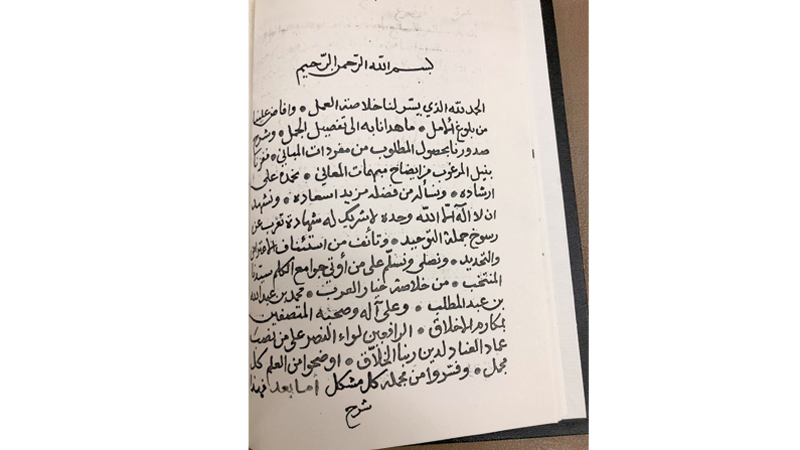 بسم الله الرحمن الرحيم
الحمد لله الذي يسّر لنا خلاصة العمل * وافاض علينا
من بلوغ الأمل * ما هدانا به الى تفصيل الجمل * وشرح
صدورنا بحصول المطلوب من مفردات المباني * ففزنا
بنيل المرغوب من ايضاح مبهمات المعاني * نحمده على
ارشاده * ونسأله من فضله مزيد اسعاده * ونشهد
ان لا اله الا الله وحده لا شريك له شهادة تعرب عن
رسوخ جملة التوحيد * وتأنف من استئناف الاعتراض
والتحديد * ونصلى ونسلّم على من أوتي جوامع الكلم سيّدنا
المنتخب * من خلاصة خيار العرب * محمد بن عبدالله
بن عبد المطلب * وعلى آله وصحبه المتصفين
بمكارم الاخلاق * الرافعين لواء النصر على من نصب
عماد العناد لدين ربنا الخلّاق * اوضحوا من العلم كل
مجمل * وفسّروا من مجمله كل مشكل أما بعد فهذا
شرح